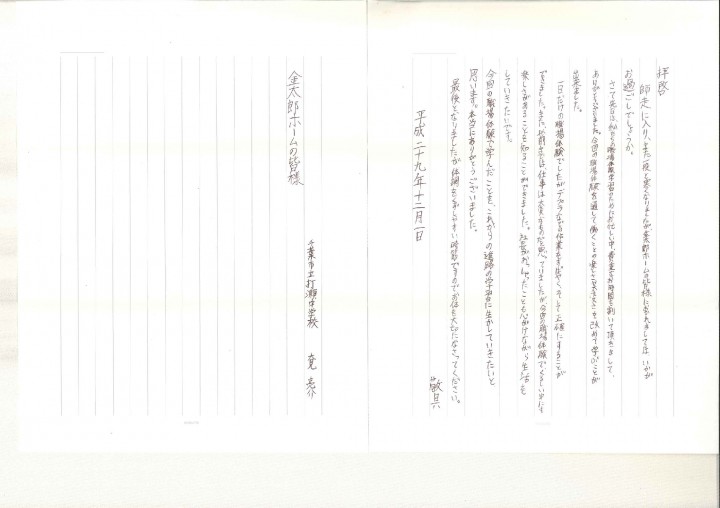 拝啓
師走に入り、また一段と寒くなりましたが、金太郎ホームの皆様におかれましては、いかが
お過ごしでしょうか。
さて先日は、私たちの職場体験学習のためにお忙しい中、貴重なお時間を割いて頂きまして、
ありがとうございました。今回の職場体験を通して働くことの楽しさ、大変さを改めて学ぶことが
出来ました。
一日だけの職場体験でしたが
できました。また、仕事は大変なものだと思っていましたが今回の職場体験で
楽しさがあることも知ることができました。したことも心がけながら生活を
していきたいです。
今回の職場体験で学んだことを、これからの進路の学習に生かしていきたいと
思います。本当にありがとうございました。
最後となりましたが体調をくずしやすい時節ですのでお体を大切になさってください。
敬具
平成二十九年十二月一日
千葉市立打瀬中学校
金太郎ホームの皆様